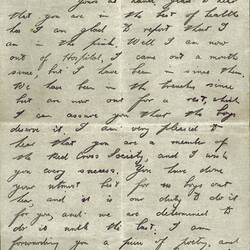 Yours to hand, glad to hear
that you are in the best of health
has I am glad to report that I
am in the pink. Well I am now
out of Hospital, I came out a month
since, but I have been in since then
We have been in the trenches since
but are now out for a rest, which
I can assure you that the boys
deserve it. I am very pleased to
hear that you are a member of
the Red Cross Society, and I wish
you every success. You have done
your utmost but for us boys out
here, and it is our duty to do it
for you, and we are determined to
do it until the last. I am
forwarding you a piece of poetry, and